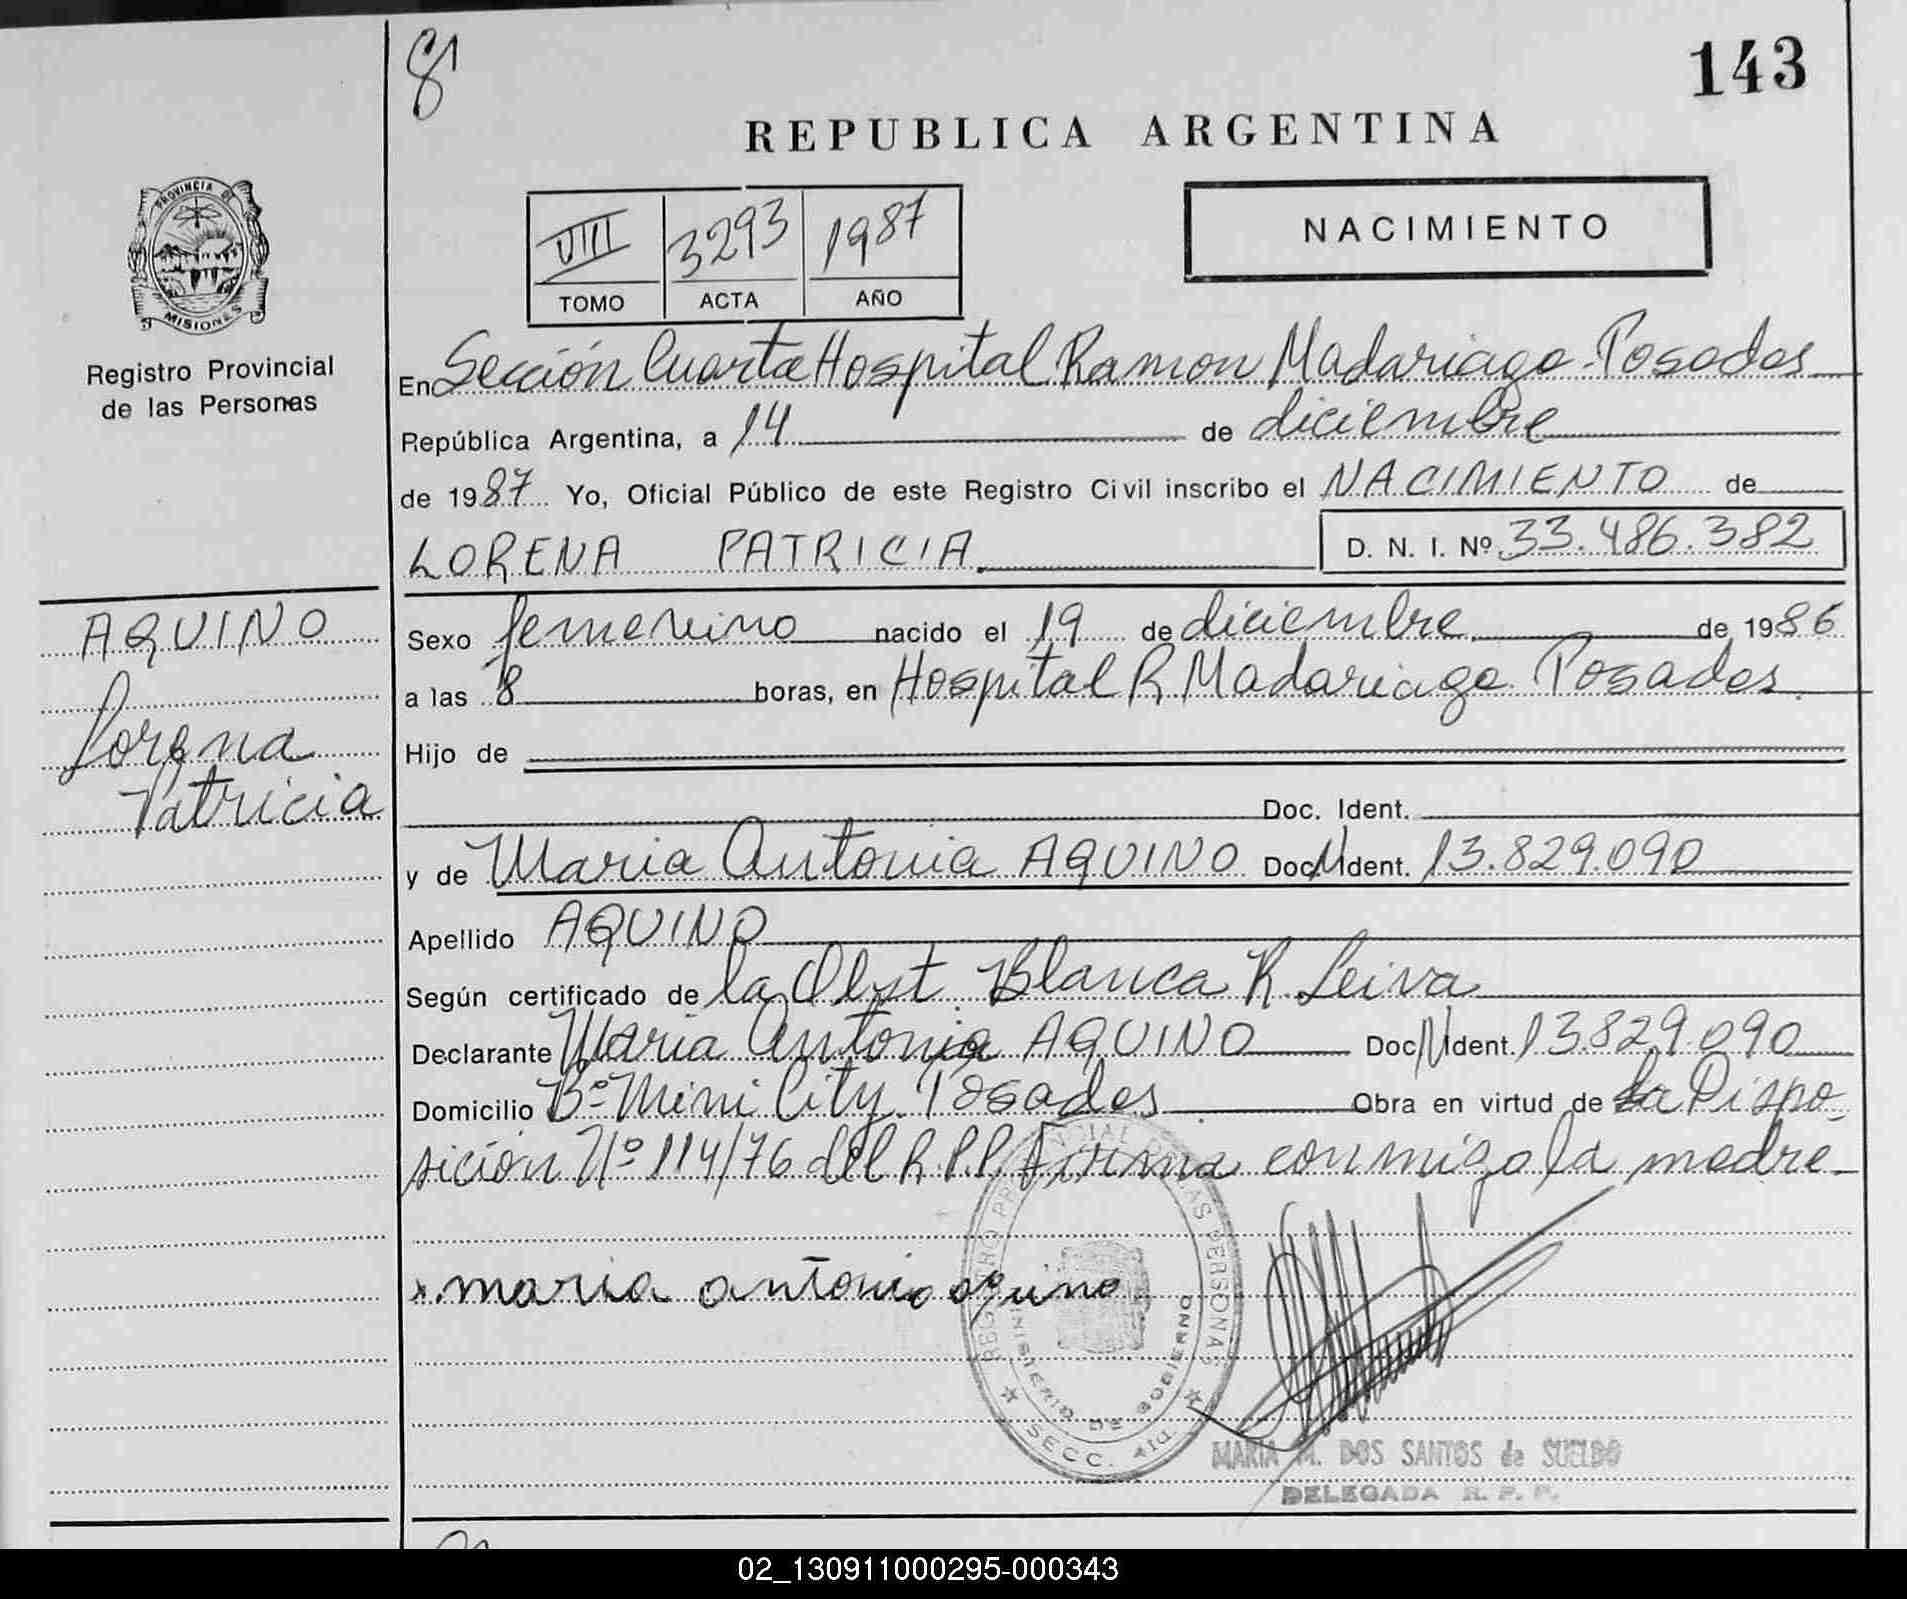 8
143
REPUBLICA ARGENTINA
PROVINCIA DE
MISIONES
Registro Provincial
de las Personas
VIII 3293 1987
TOMO ACTA AÑO
NACIMIENTO
En Sección Cuarta Hospital Ramon Madariaga - Posadas
República Argentina, a 14 de diciembre
de 1987 Yo, Oficial Público de este Registro Civil inscribo el NACIMIENTO de
LORENA PATRICIA D. N. I. Nº 33.486.382
AQUINO
Lorena
Patricia
Sexo femenino nacido el 19 de diciembre de 1986
a las 8 horas, en Hospital R Madariaga Posadas.
Hijo de
Doc. Ident.
y de Maria Antonia AQUINO Doc. Ident. 13.829.090
Apellido AQUINO
Según certificado de la Obst. Blanca R. Leiva
Declarante Maria Antonia AQUINO Doc. Ident. 13.829.090
Domicilio Bº Mini City. Posadas Obra en virtud de la Dispo-
sición Nº 114/76 del R.P.P. Firma conmigo la madre
x maria antonia aquino
REGISTRO PROVINCIAL DE LAS PERSONAS
MINISTERIO DE GOBIERNO
SECC. 4ta
MARIA M. DOS SANTOS de SUELDO
DELEGADA R. P. P.
02_130911000295-000343